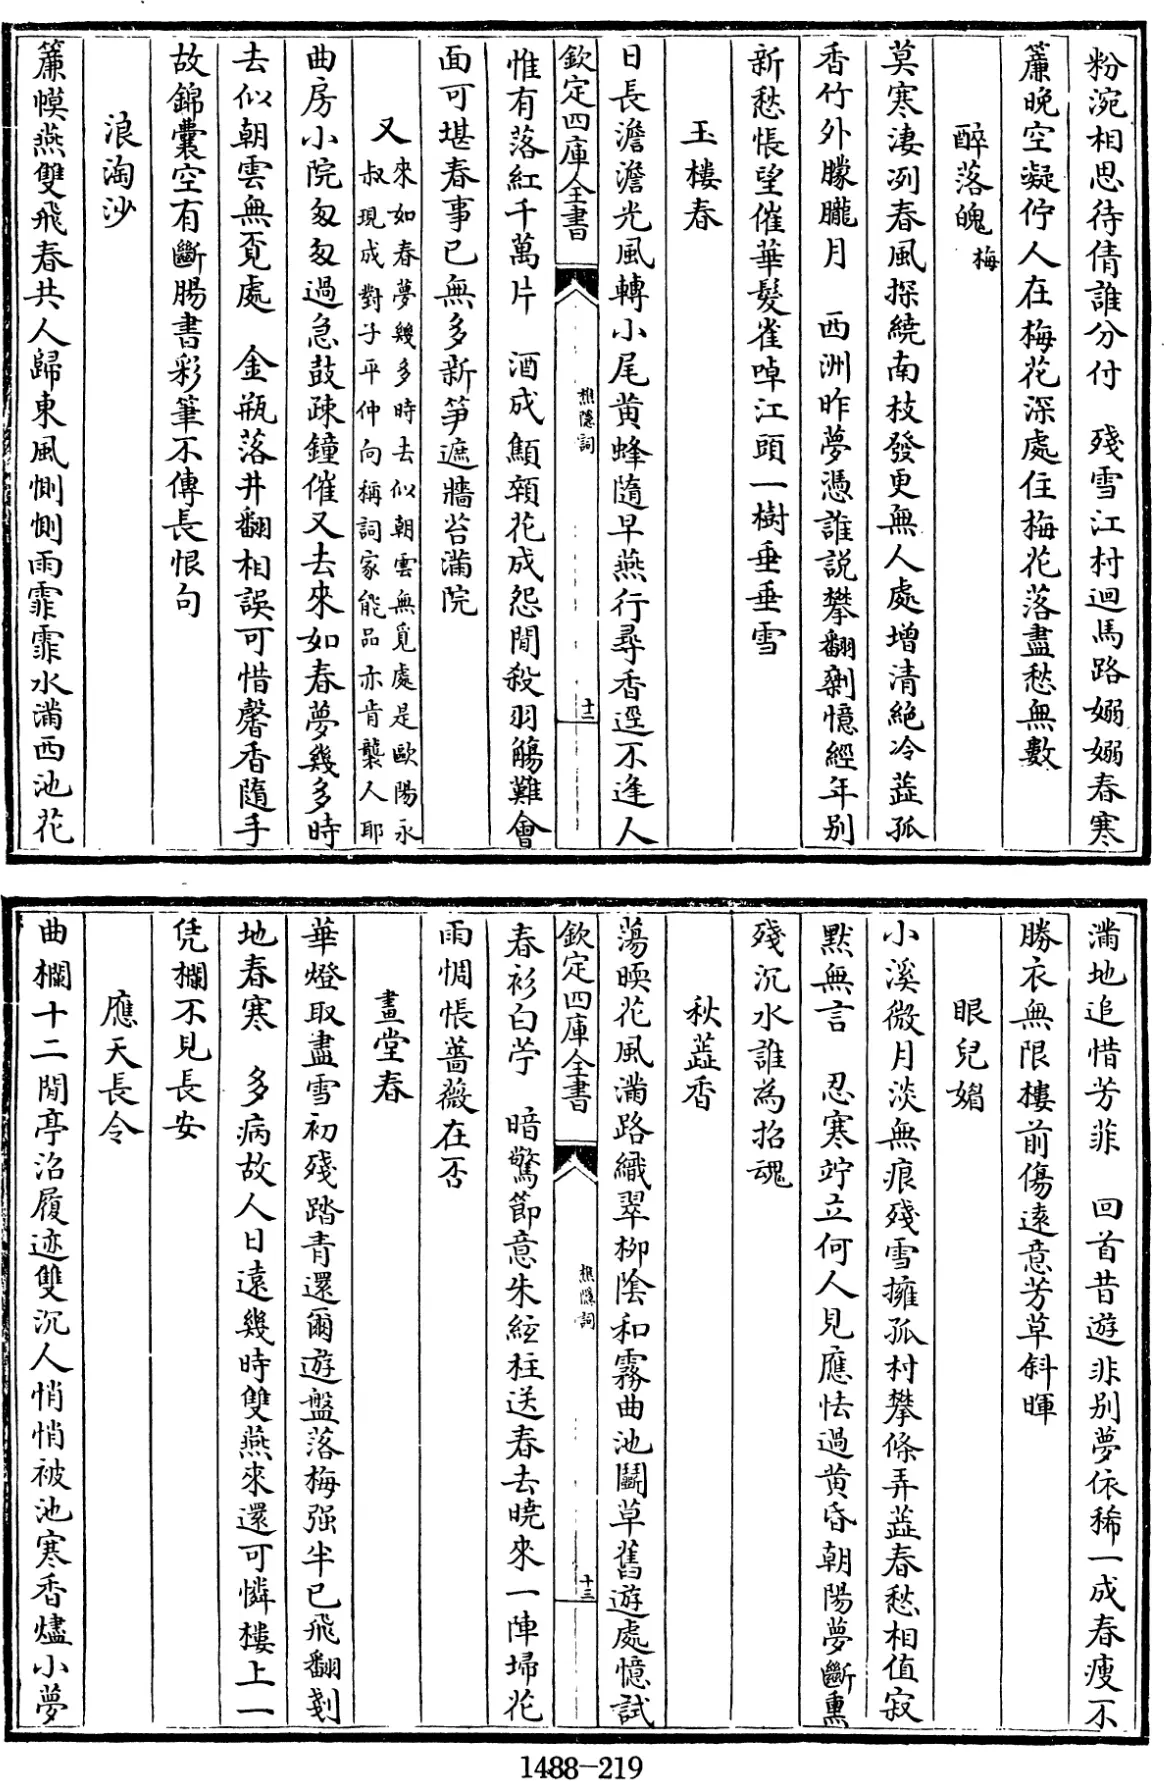 粉涴相思待倩誰分付　殘雪江村迴馬路嫋嫋春寒
簾晚空凝佇人在梅花深處住梅花落盡愁無數
醉落魄梅
莫寒淒冽春風探繞南枝發更無人處增清絶冷蕋孤
香竹外朦朧月　西洲昨夢憑誰説攀翻剩憶經年别
新愁悵望催華髮雀啅江頭一樹垂垂雪
玉樓春
日長澹澹光風轉小尾黄蜂隨早燕行尋香逕不逢人
欽定四庫全書
樵隱詞
十二
惟有落紅千萬片　酒成顦顇花成怨閒殺羽觴難會
面可堪春事已無多新笋遮牆苔滿院
又
來如春夢幾多時去似朝雲無覓處是歐陽永
叔現成對子平仲向稱詞家能品亦肯襲人耶
曲房小院匆匆過急鼓疎鐘催又去來如春夢幾多時
去似朝雲無覓處　金瓶落井翻相誤可惜馨香隨手
故錦囊空有斷腸書彩筆不傳長恨句
浪淘沙
簾幙燕雙飛春共人歸東風惻惻雨霏霏水滿西池花
滿地追惜芳菲　回首昔遊非别夢依稀一成春瘦不
勝衣無限樓前傷遠意芳草斜暉
眼兒媚
小溪微月淡無痕殘雪擁孤村攀條弄蕋春愁相值寂
默無言　忍寒竚立何人見應怯過黄昏朝陽夢斷熏
殘沉水誰為招魂
秋蕋香
蕩暝花風滿路織翠柳陰和霧曲池鬭草舊遊處憶試
欽定四庫全書
樵隱詞
十三
春衫白苧　暗驚節意朱絃柱送春去曉來一陣埽花
雨惆悵薔薇在否
畫堂春
華燈取盡雪初殘踏青還爾遊盤落梅强半已飛翻剗
地春寒　多病故人日遠幾時雙燕來還可憐樓上一
凭欄不見長安
應天長令
曲欄十二閒亭沼履迹雙沉人悄悄被池寒香燼小夢
1488-219